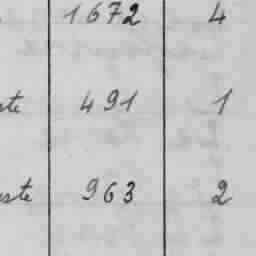 1672 4
ste 491 1
este 963 2